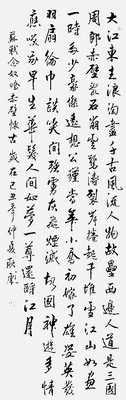 大江東去浪淘盡千古風流人物故壘西邊人道是三國
周郎赤壁亂石崩雲驚濤裂岸捲起千堆雪江山如畫
一時多少豪傑遙想公瑾當年小喬初嫁了雄姿英發
羽扇綸巾談笑間強虜灰飛煙滅故國神遊多情
應笑我早生華髮人間如夢一尊還酹江月
蘇軾念奴嬌赤壁懷古歲在己丑